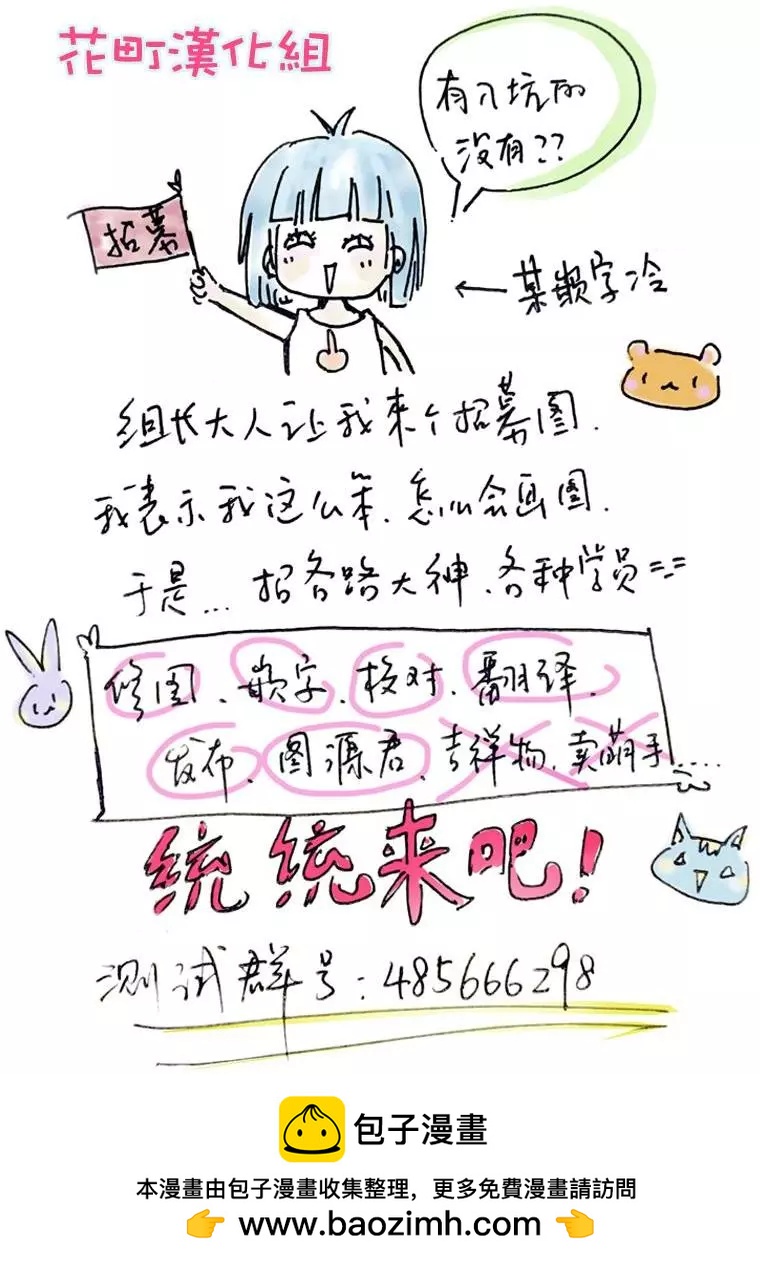 花町漢化組
有入坑的
没有??
招募
←某嵌字冷
组长大人让我来个招募图.
我表示我这么笨.怎么会画图.
于是...招各路大神、各种学员==
修图、嵌字、校对、翻译、
发布、图源君、吉祥物、卖萌手.....
统统来吧!
测试群号:485666298
包子漫畫
本漫畫由包子漫畫收集整理,更多免費漫畫請訪問
👉 www.baozimh.com 👈